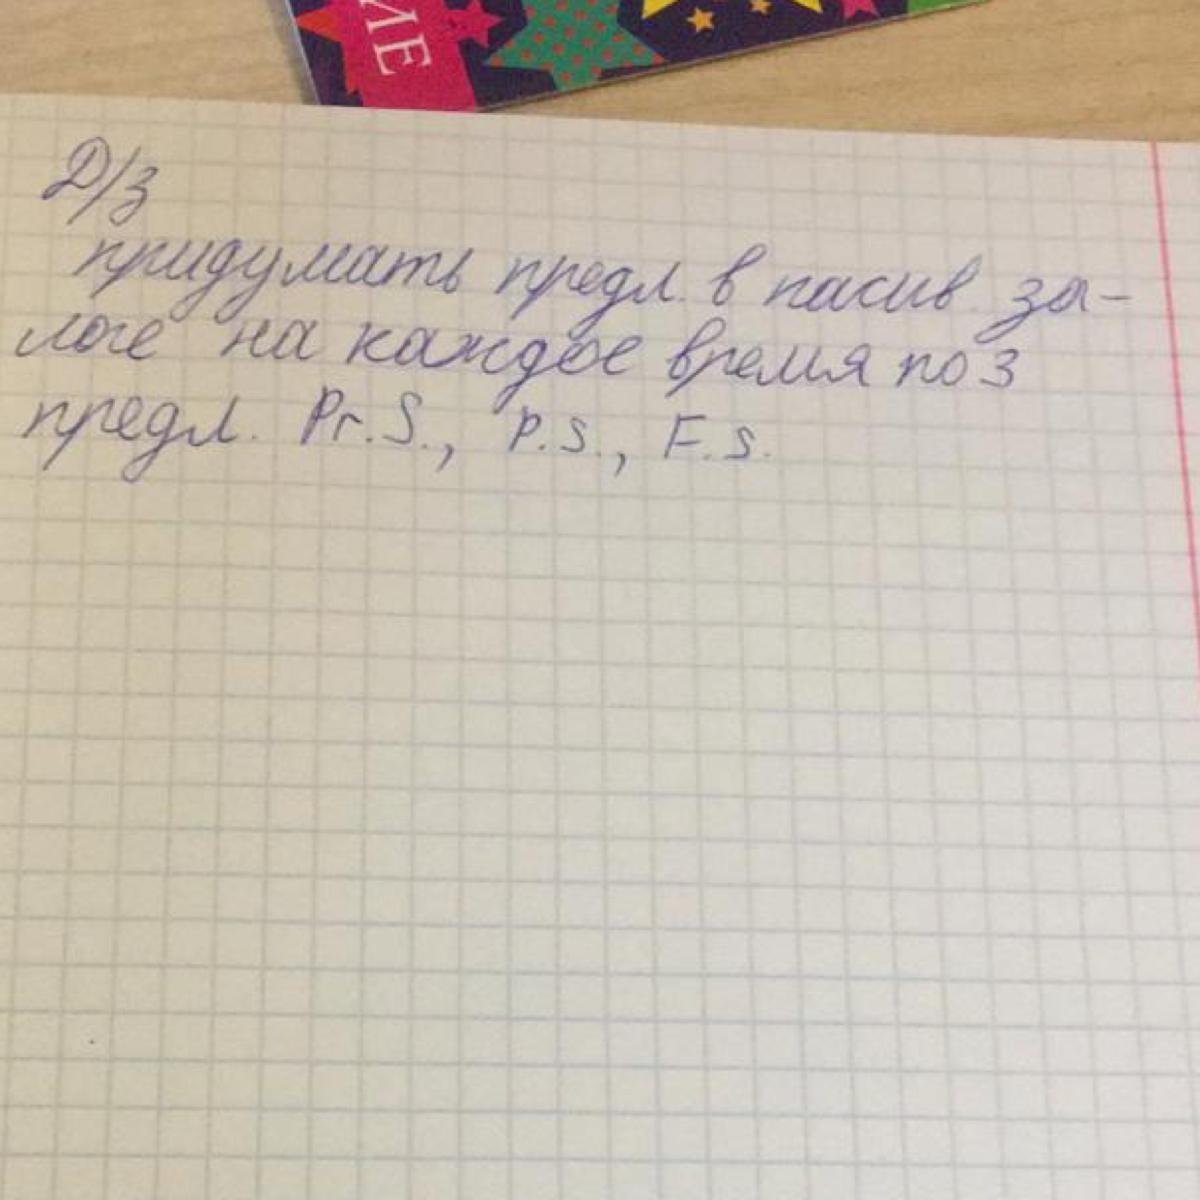 ИЕ
Д/з
придумать предл. в пасив. за-
логе на каждое время по 3
предл. Pr.S., P.S., F.S.